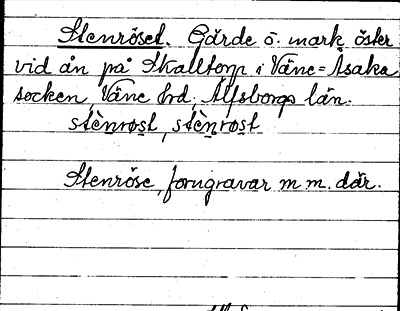 Stenröset. Gärde o. mark öster
vid ån på Skalltorp i Väne-Åsaka
socken, Väne hrd, Älfsborgs län.
stènrøst, stènrøst
Stenröse, forngravar m m. där.